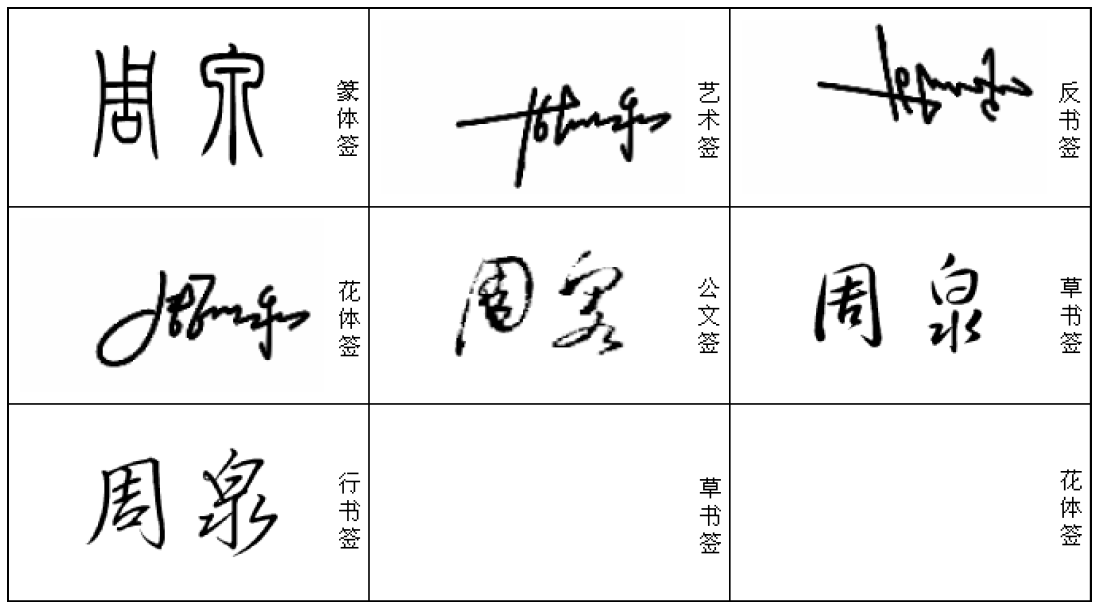 周泉
篆体签
周泉
艺术签
周泉
反书签
周泉
花体签
周泉
公文签
周泉
草书签
周泉
行书签
草书签
花体签